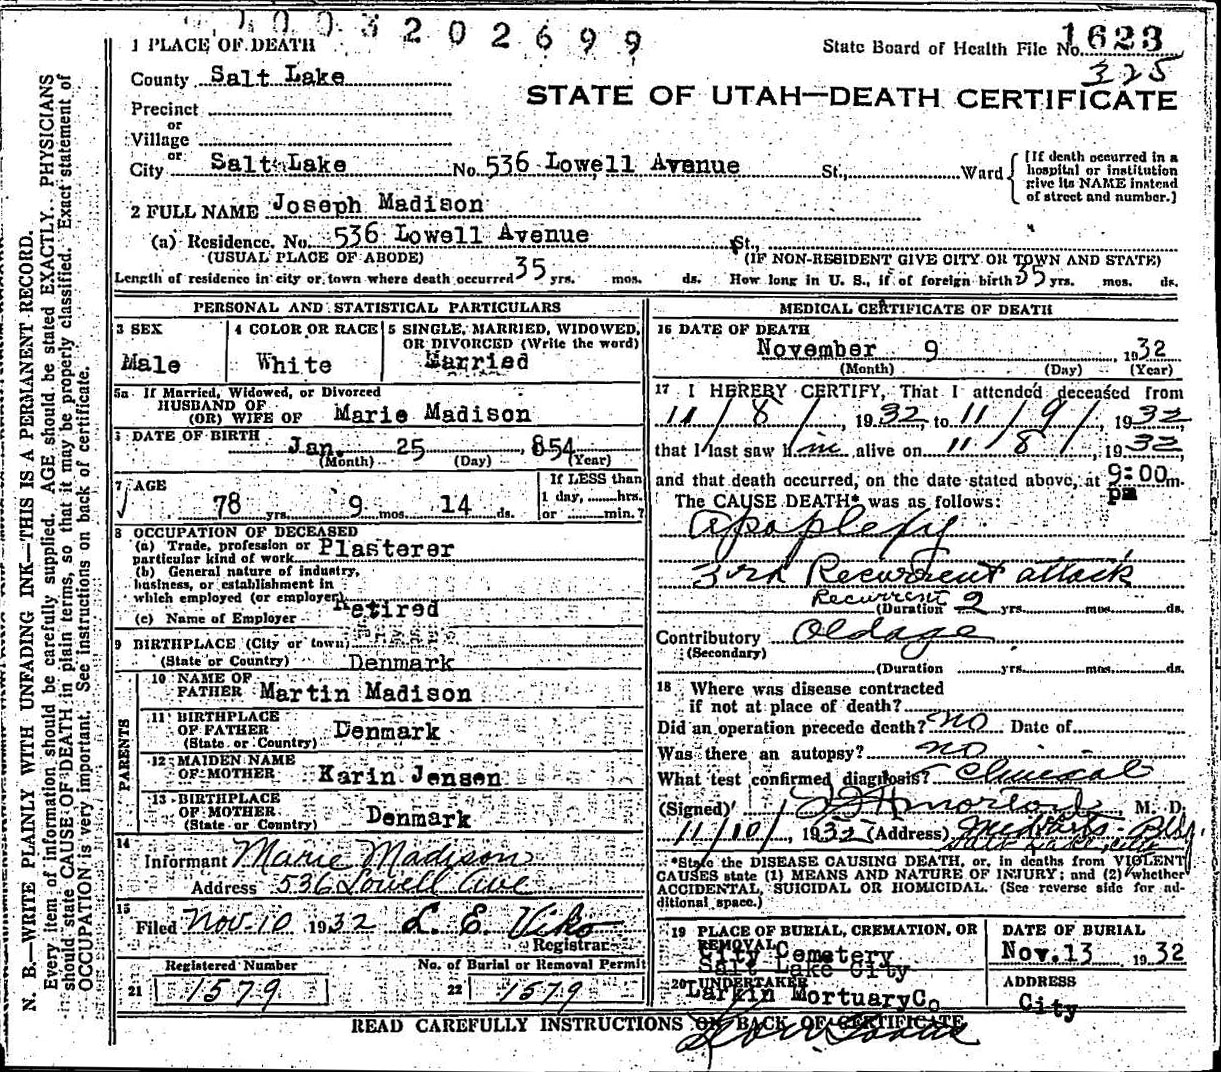 1003202699
1 PLACE OF DEATH
State Board of Health File No. 1623
325
County Salt Lake
STATE OF UTAH—DEATH CERTIFICATE
Precinct
or
Village
or
City Salt Lake No. 536 Lowell Avenue St., Ward
[If death occurred in a
hospital or institution
give its NAME instead
of street and number.]
2 FULL NAME Joseph Madison
(a) Residence. No. 536 Lowell Avenue St.,
(USUAL PLACE OF ABODE) (IF NON-RESIDENT GIVE CITY OR TOWN AND STATE)
Length of residence in city or town where death occurred 35 yrs. mos. ds. How long in U. S., if of foreign birth 35 yrs. mos. ds.
PERSONAL AND STATISTICAL PARTICULARS
3 SEX
Male
4 COLOR OR RACE
White
5 SINGLE, MARRIED, WIDOWED,
OR DIVORCED (Write the word)
Married
5a If Married, Widowed, or Divorced
HUSBAND OF
(OR) WIFE OF Marie Madison
6 DATE OF BIRTH Jan. 25, 1854
(Month) (Day) (Year)
7 AGE
78 yrs. 9 mos. 14 ds.
If LESS than
1 day, hrs.
or min.?
8 OCCUPATION OF DECEASED
(a) Trade, profession or
particular kind of work Plasterer
(b) General nature of industry,
business, or establishment in
which employed (or employer) Retired
(c) Name of Employer
9 BIRTHPLACE (City or town)
(State or Country) Denmark
PARENTS
10 NAME OF
FATHER Martin Madison
11 BIRTHPLACE
OF FATHER Denmark
(State or Country)
12 MAIDEN NAME
OF MOTHER Karin Jensen
13 BIRTHPLACE
OF MOTHER Denmark
(State or Country)
14
Informant Marie Madison
Address 536 Lowell Ave
15
Filed Nov. 10 1932 L. E. Viko
Registrar
Registered Number
21 1579
No. of Burial or Removal Permit
22 1579
MEDICAL CERTIFICATE OF DEATH
16 DATE OF DEATH
November 9, 1932
(Month) (Day) (Year)
17 I HEREBY CERTIFY, That I attended deceased from
11/8/, 1932, to 11/9/, 1932
that I last saw him alive on 11/8/, 1932,
and that death occurred, on the date stated above, at 9:00 m.
pm
The CAUSE DEATH* was as follows:
Apoplexy
3rd Recurrent attack
Recurrent
(Duration 2 yrs. mos. ds.
Contributory Old age
(Secondary)
(Duration yrs. mos. ds.
18 Where was disease contracted
if not at place of death?
Did an operation precede death? no Date of
Was there an autopsy? no
What test confirmed diagnosis? Clinical
(Signed) M. D.
11/10/, 1932 (Address) Bldg.
Salt Lake City
*State the DISEASE CAUSING DEATH, or, in deaths from VIOLENT
CAUSES state (1) MEANS AND NATURE OF INJURY; and (2) whether
ACCIDENTAL, SUICIDAL OR HOMICIDAL. (See reverse side for ad-
ditional space.)
19 PLACE OF BURIAL, CREMATION, OR
REMOVAL City Cemetery
Salt Lake City
DATE OF BURIAL
Nov. 13 1932
20 UNDERTAKER
Larkin Mortuary Co
ADDRESS
City
READ CAREFULLY INSTRUCTIONS ON BACK OF CERTIFICATE
N. B.—WRITE PLAINLY WITH UNFADING INK—THIS IS A PERMANENT RECORD.
Every item of information should be carefully supplied. AGE should be stated EXACTLY. PHYSICIANS
should state CAUSE OF DEATH in plain terms, so that it may be properly classified. Exact statement of
OCCUPATION is very important. See instructions on back of certificate.